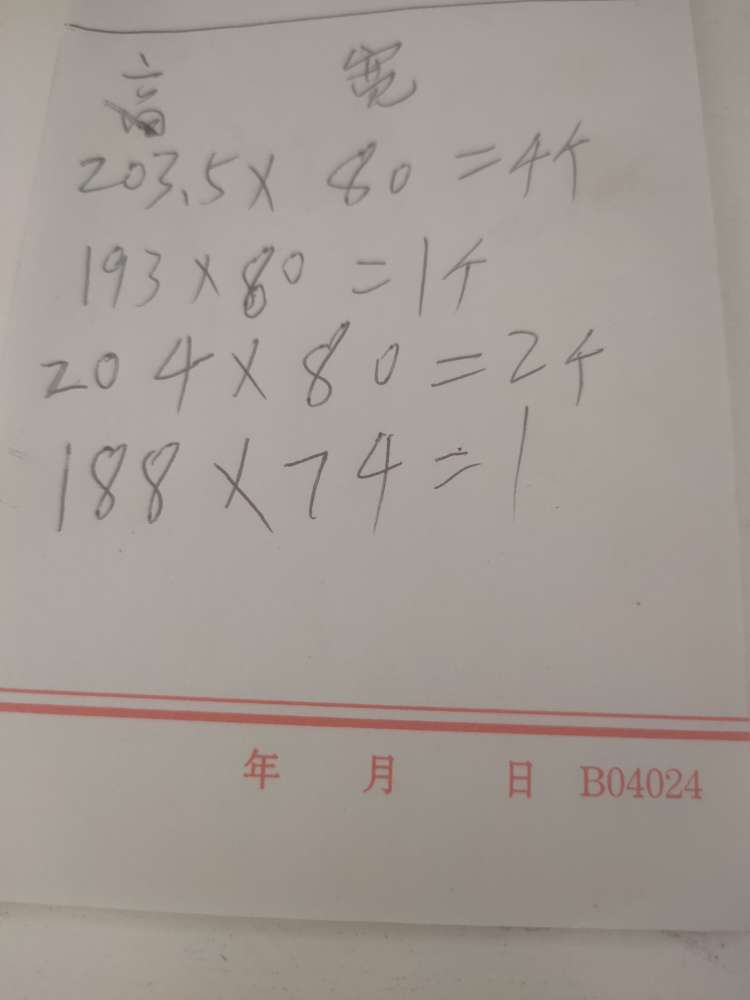 高 宽
203.5×80=4个
193×80=1个
204×80=2个
188×74=1
年 月 日 B04024